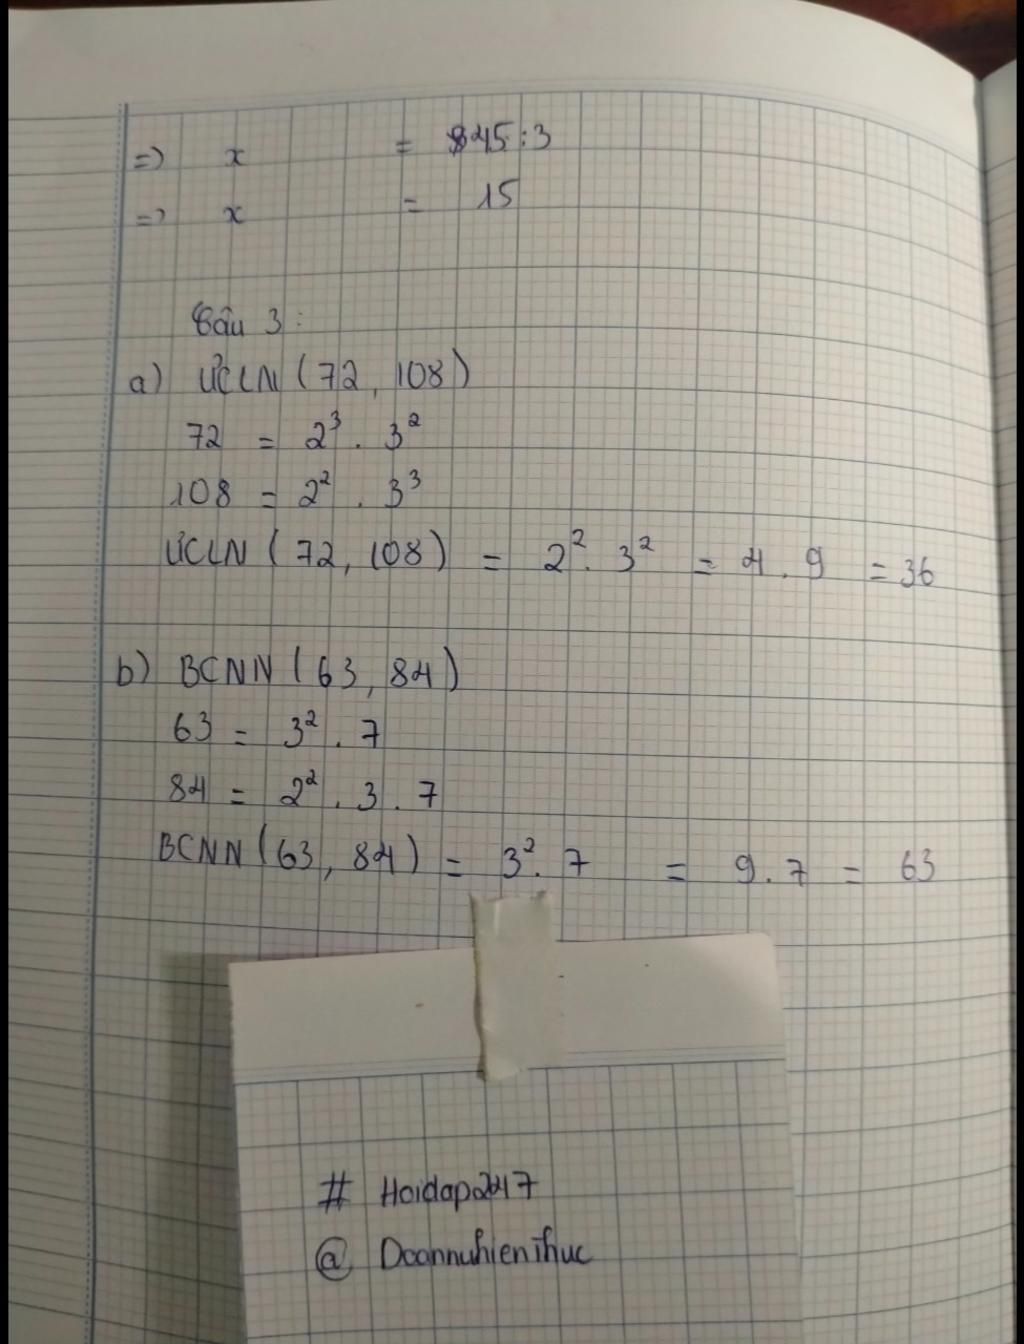 => x = 45:3
=> x = 15
Câu 3:
a) ƯCLN (72, 108)
72 = 2³ . 3²
108 = 2² . 3³
ƯCLN (72, 108) = 2² . 3² = 4 . 9 = 36
b) BCNN (63, 84)
63 = 3² . 7
84 = 2² . 3 . 7
BCNN (63, 84) = 3² . 7 = 9 . 7 = 63
# Hoidap247
@ Doannuhienthuc